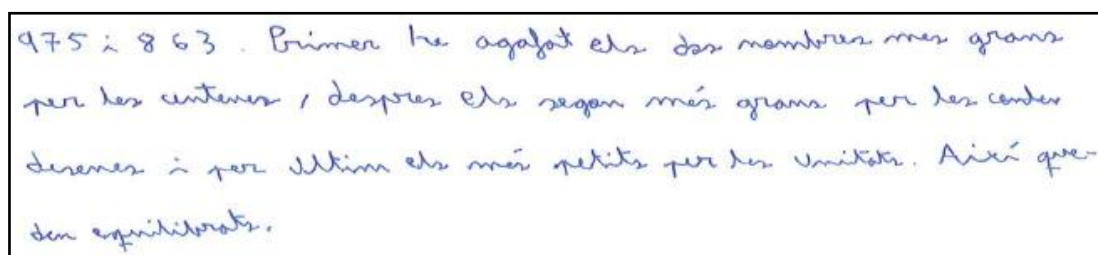 975 i 863. Primer he agafat els dos nombres mes grans
per les centenes, despres els segon més grans per les
desenes i per ultim els més petits per les unitats. Aixi que-
den equilibrats.